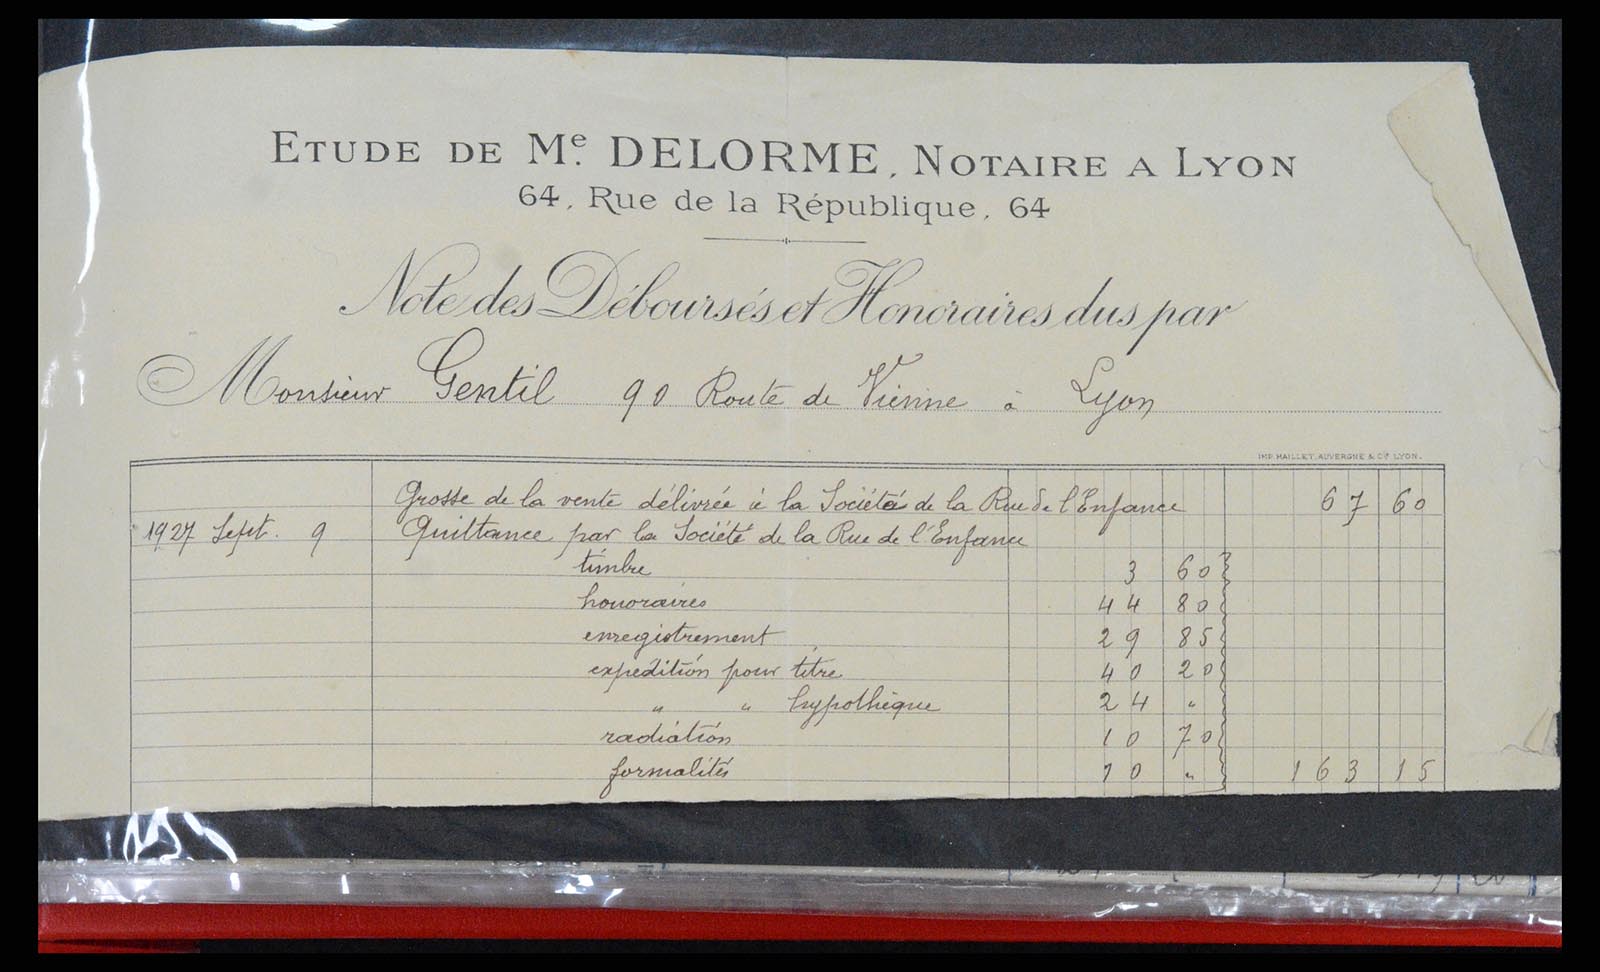 ETUDE DE Me. DELORME, NOTAIRE A LYON
64, Rue de la République, 64
Note des Déboursés et Honoraires dus par
Monsieur Gentil 90 Route de Vienne à Lyon
IMP. MAILLET, AUVERGNE & Cie LYON.
Grosse de la vente délivrée à la Société de la Rue de l'Enfance 67 60
1927 Sept. 9 Quittance par la Société de la Rue de l'Enfance
timbre 3 60
honoraires 44 80
enregistrement 29 85
expédition pour titre 40 20
" " hypothèque 24 "
radiation 10 70
formalités 10 " 163 15